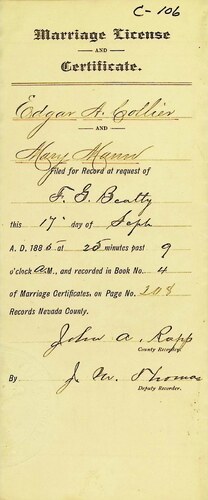 C-106
Marriage License
AND
Certificate.
Edgar A. Collier
AND
Mary Mann
Filed for Record at request of
F. G. Beatty
this 17" day of Sept
A. D. 1885 at 25 minutes past 9
o'clock A.M., and recorded in Book No. 4
of Marriage Certificates, on Page No. 208
Records Nevada County.
John A. Rapp
County Recorder.
By J. W. Thomas
Deputy Recorder.